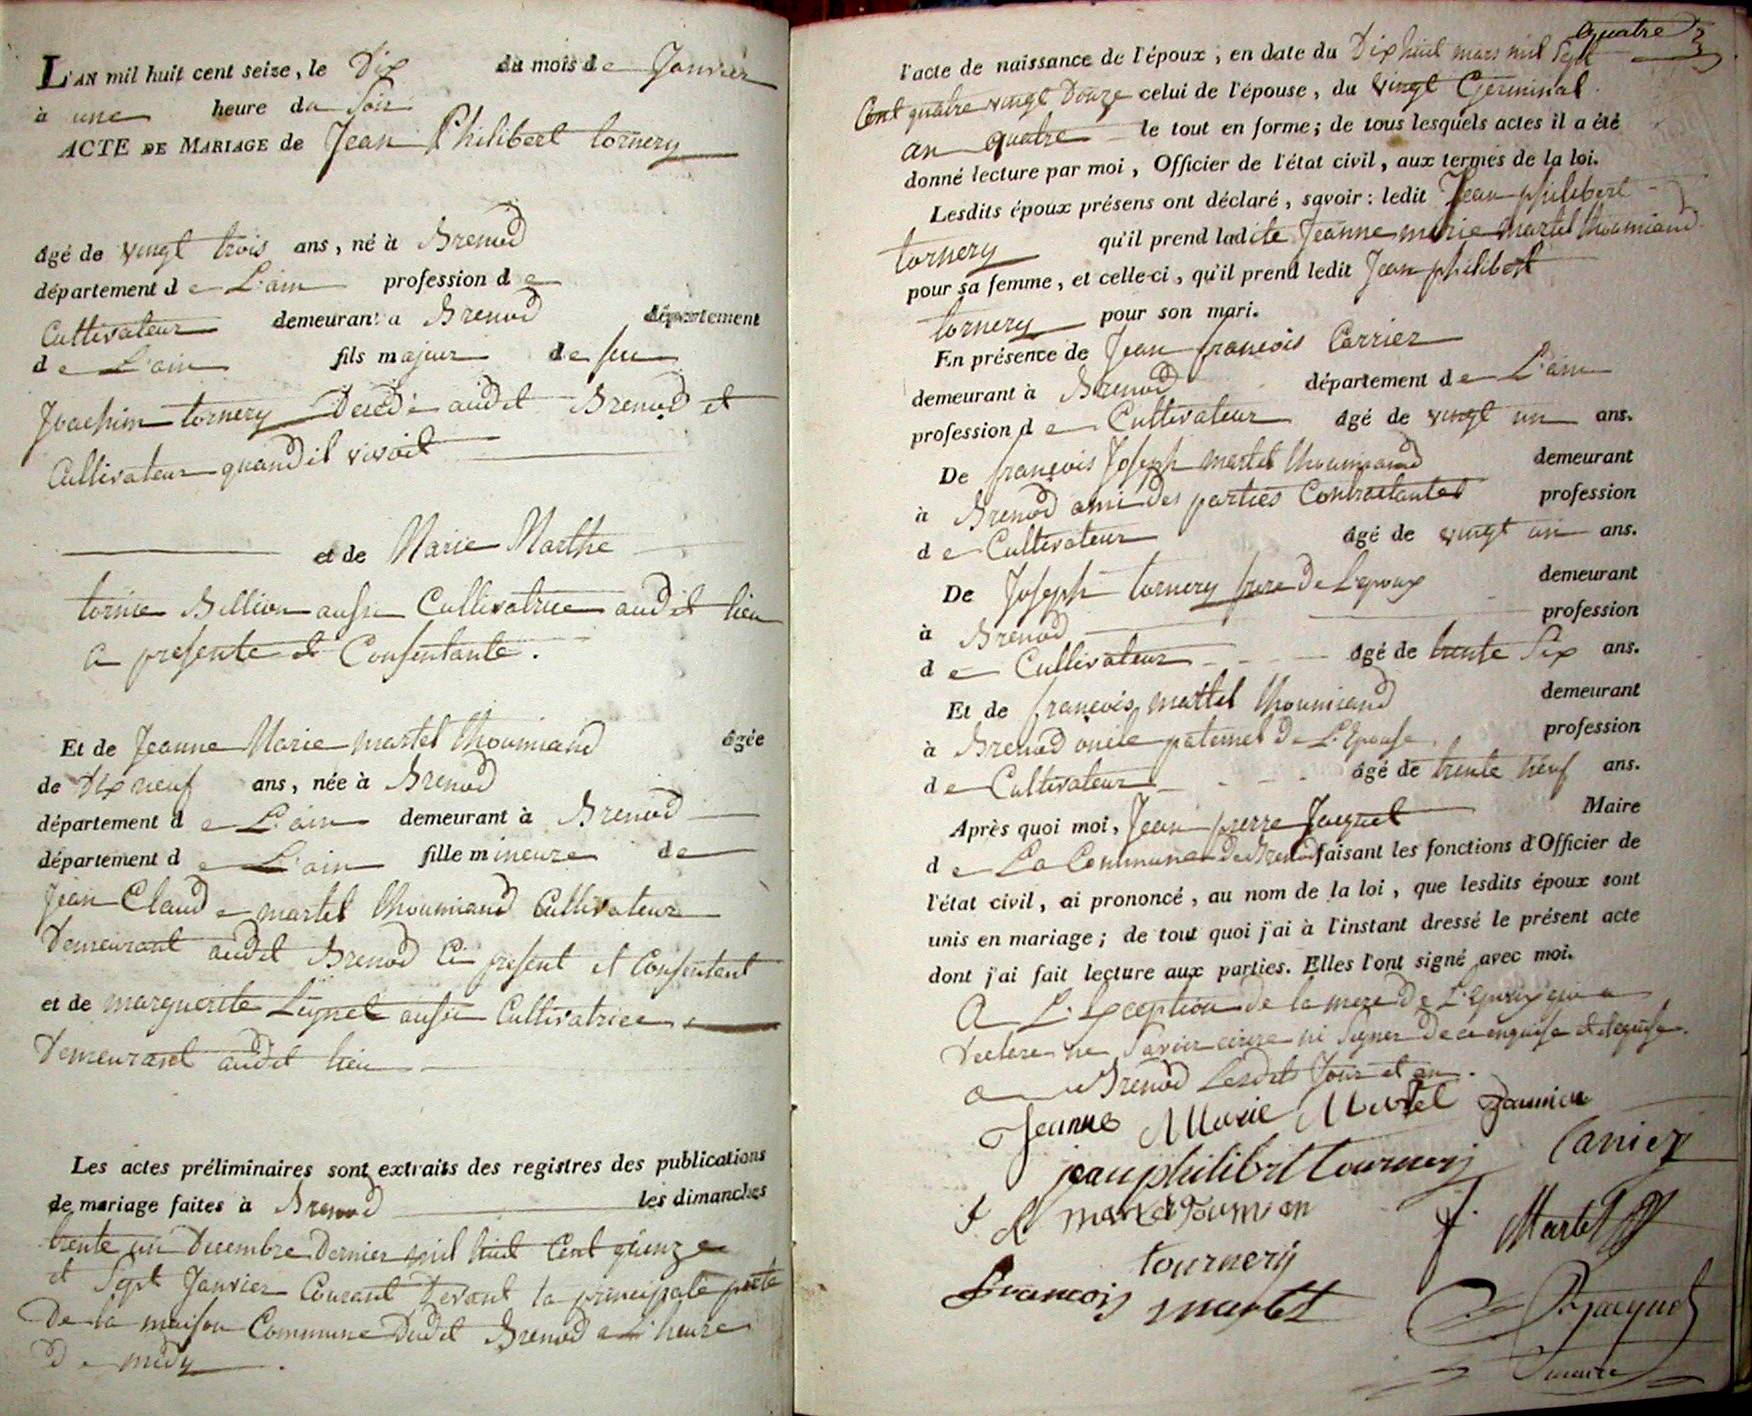 L'AN mil huit cent seize, le Dix du mois de Janvier
à une heure du Soir
ACTE DE MARIAGE de Jean Philibert tornery
âgé de vingt trois ans, né à Brenod
département de L'ain profession de
Cultivateur demeurant a Brenod département
de L'ain fils majeur de feu
Joachim tornery Décédé audit Brenod et
Cultivateur quand il vivoit
et de Marie Marthe
tornie Billion aussi Cultivatrice audit lieu
a presente et Consentante.
Et de Jeanne Marie martel thoumiand âgée
de dix neuf ans, née à Brenod
département de L'ain demeurant à Brenod
département de L'ain fille mineure de
Jean Claude martel thoumiand Cultivateur
Demeurant audit Brenod Ci present et Consentant
et de marguerite Lignet aussi Cultivatrice
Demeurant audit lieu
Les actes préliminaires sont extraits des registres des publications
de mariage faites à Brenod les dimanches
trente un Decembre Dernier mil huit Cent quinze
et Sept Janvier Courant Devant la principale porte
De la maison Commune Dudit Brenod a L'heure
De midy.
quatre
l'acte de naissance de l'époux, en date du Dix huit mars mil Sept
Cent quatre vingt Douze celui de l'épouse, du vingt Germinal
an quatre le tout en forme; de tous lesquels actes il a été
donné lecture par moi, Officier de l'état civil, aux termes de la loi.
Lesdits époux présens ont déclaré, savoir: ledit Jean philibert
tornery qu'il prend ladite Jeanne marie martel thoumiand
pour sa femme, et celle-ci, qu'il prend ledit Jean philibert
tornery pour son mari.
En présence de Jean françois Carrier
demeurant à Brenod département de L'ain
profession de Cultivateur âgé de vingt un ans.
De françois Joseph martel thoumiand demeurant
à Brenod ami des parties Contractantes profession
de Cultivateur âgé de vingt un ans.
De Joseph tornery frere De L'epoux demeurant
à Brenod profession
de Cultivateur âgé de trente Six ans.
Et de françois martel thoumiand demeurant
à Brenod oncle paternel De L'Epouse profession
de Cultivateur âgé de trente neuf ans.
Après quoi moi, Jean pierre Jacquet Maire
de La Commune de Brenod faisant les fonctions d'Officier de
l'état civil, ai prononcé, au nom de la loi, que lesdits époux sont
unis en mariage; de tout quoi j'ai à l'instant dressé le présent acte
dont j'ai fait lecture aux parties. Elles l'ont signé avec moi.
A L'exception de la mere De L'Epoux qui a
Declaré ne Savoir ecrire ni Signer De ce enquise et requise.
a Brenod Lesdits Jour et an.
Jeanne Marie Martel
jean philibert tournery Carrier
f J martel toumian f. Martel
tournery
francois martel Jacquet
maire